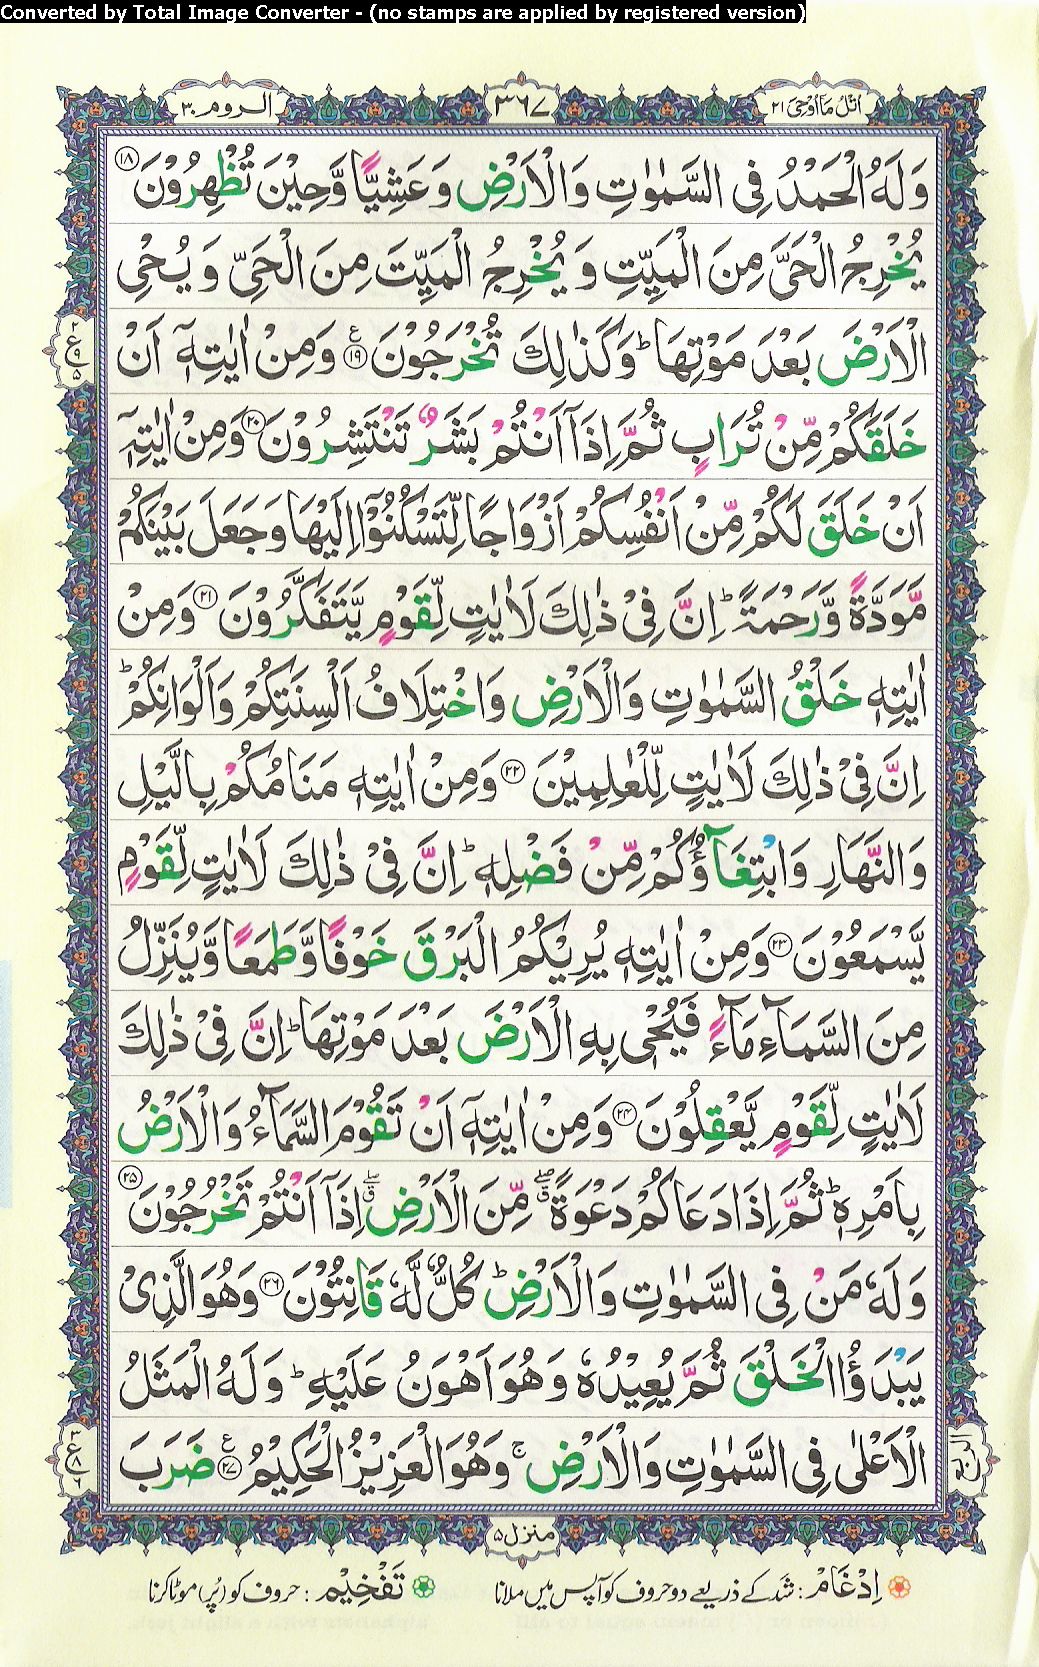 Converted by Total Image Converter - (no stamps are applied by registered version)
اتل ما اوحی ۲۱
۳۶۷
الروم ۳۰
وَلَهُ الْحَمْدُ فِى السَّمٰوٰتِ وَالْاَرْضِ وَعَشِيًّا وَّحِيْنَ تُظْهِرُوْنَ ۱۸
يُخْرِجُ الْحَىَّ مِنَ الْمَيِّتِ وَيُخْرِجُ الْمَيِّتَ مِنَ الْحَىِّ وَيُحْىِ
الْاَرْضَ بَعْدَ مَوْتِهَا ؕ وَكَذٰلِكَ تُخْرَجُوْنَ ۱۹ ع وَمِنْ اٰيٰتِهٖۤ اَنْ
خَلَقَكُمْ مِّنْ تُرَابٍ ثُمَّ اِذَاۤ اَنْتُمْ بَشَرٌ تَنْتَشِرُوْنَ ۲۰ وَمِنْ اٰيٰتِهٖۤ
اَنْ خَلَقَ لَكُمْ مِّنْ اَنْفُسِكُمْ اَزْوَاجًا لِّتَسْكُنُوْۤا اِلَيْهَا وَجَعَلَ بَيْنَكُمْ
مَّوَدَّةً وَّرَحْمَةً ؕ اِنَّ فِىْ ذٰلِكَ لَاٰيٰتٍ لِّقَوْمٍ يَّتَفَكَّرُوْنَ ۲۱ وَمِنْ
اٰيٰتِهٖ خَلْقُ السَّمٰوٰتِ وَالْاَرْضِ وَاخْتِلَافُ اَلْسِنَتِكُمْ وَاَلْوَانِكُمْ ؕ
اِنَّ فِىْ ذٰلِكَ لَاٰيٰتٍ لِّلْعٰلِمِيْنَ ۲۲ وَمِنْ اٰيٰتِهٖ مَنَامُكُمْ بِالَّيْلِ
وَالنَّهَارِ وَابْتِغَآؤُكُمْ مِّنْ فَضْلِهٖ ؕ اِنَّ فِىْ ذٰلِكَ لَاٰيٰتٍ لِّقَوْمٍ
يَّسْمَعُوْنَ ۲۳ وَمِنْ اٰيٰتِهٖ يُرِيْكُمُ الْبَرْقَ خَوْفًا وَّطَمَعًا وَّيُنَزِّلُ
مِنَ السَّمَآءِ مَآءً فَيُحْىٖ بِهِ الْاَرْضَ بَعْدَ مَوْتِهَا ؕ اِنَّ فِىْ ذٰلِكَ
لَاٰيٰتٍ لِّقَوْمٍ يَّعْقِلُوْنَ ۲۴ وَمِنْ اٰيٰتِهٖۤ اَنْ تَقُوْمَ السَّمَآءُ وَالْاَرْضُ
بِاَمْرِهٖ ؕ ثُمَّ اِذَا دَعَاكُمْ دَعْوَةً ۖق مِّنَ الْاَرْضِ ۖق اِذَاۤ اَنْتُمْ تَخْرُجُوْنَ ۲۵
وَلَهٗ مَنْ فِى السَّمٰوٰتِ وَالْاَرْضِ ؕ كُلٌّ لَّهٗ قَانِتُوْنَ ۲۶ وَهُوَ الَّذِىْ
يَبْدَؤُا الْخَلْقَ ثُمَّ يُعِيْدُهٗ وَهُوَ اَهْوَنُ عَلَيْهِ ؕ وَلَهُ الْمَثَلُ
الْاَعْلٰى فِى السَّمٰوٰتِ وَالْاَرْضِ ۚ وَهُوَ الْعَزِيْزُ الْحَكِيْمُ ۲۷ ع ضَرَبَ
۲ ع ۹ ۵
۳ ع ۸ ۶
الربع
منزل ۵
اِدْغَام : شَد کے ذریعے دو حروف کو آپس میں ملانا
تَفْخِیْم : حروف کو (پُر) موٹا کرنا